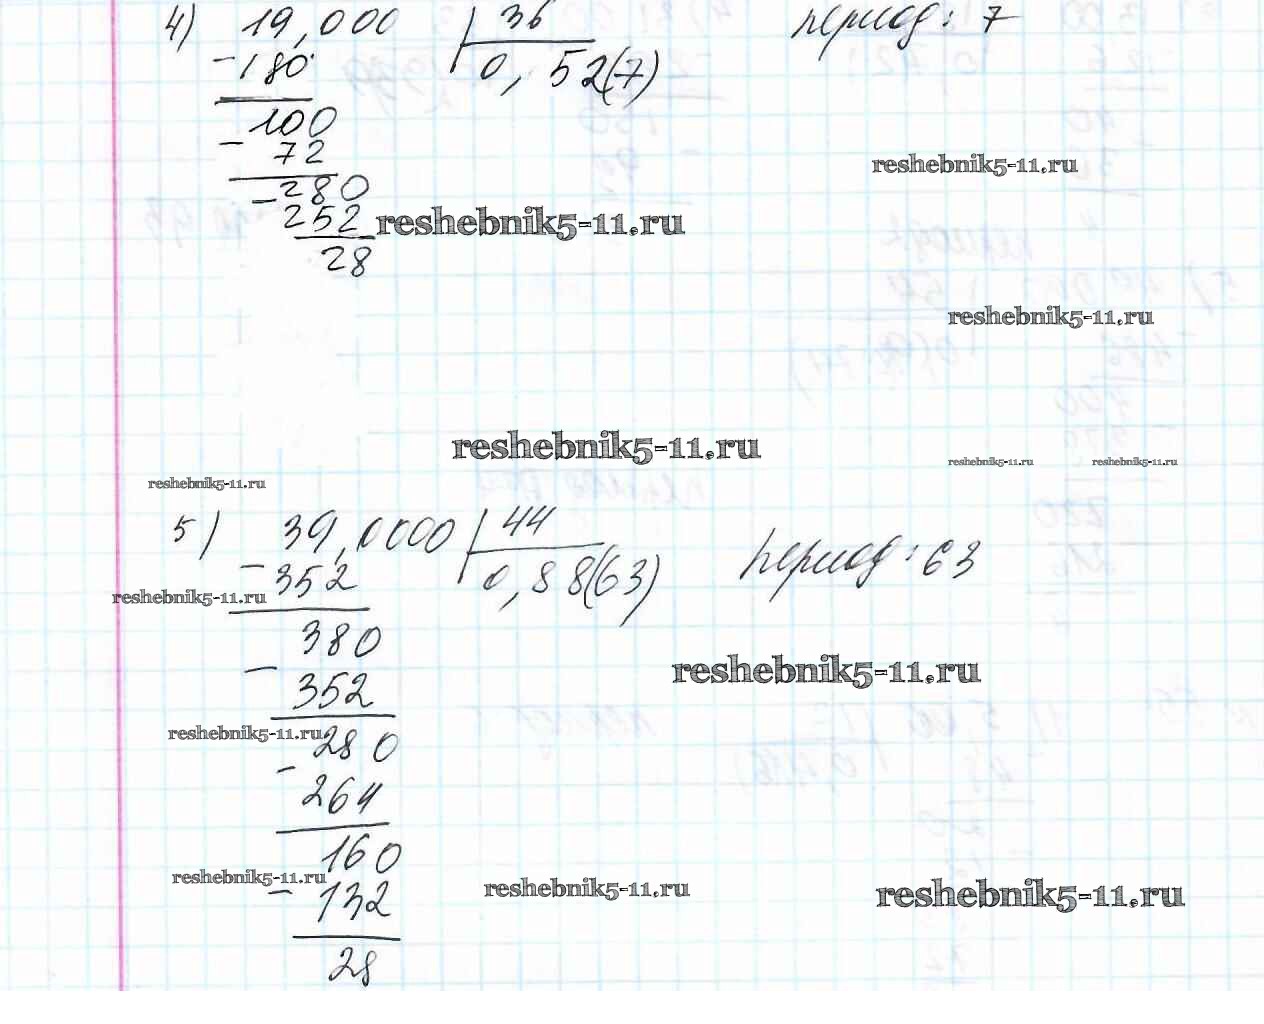 4) 19,000 | 36 период: 7
- 180 0,52(7)
100
- 72
reshebnik5-11.ru
- 280
252 reshebnik5-11.ru
28
reshebnik5-11.ru
reshebnik5-11.ru
reshebnik5-11.ru reshebnik5-11.ru
reshebnik5-11.ru
5) 39,0000 | 44 период: 63
- 352 0,88(63)
reshebnik5-11.ru
380
- 352
reshebnik5-11.ru
reshebnik5-11.ru 280
- 264
160
reshebnik5-11.ru - 132 reshebnik5-11.ru reshebnik5-11.ru
28